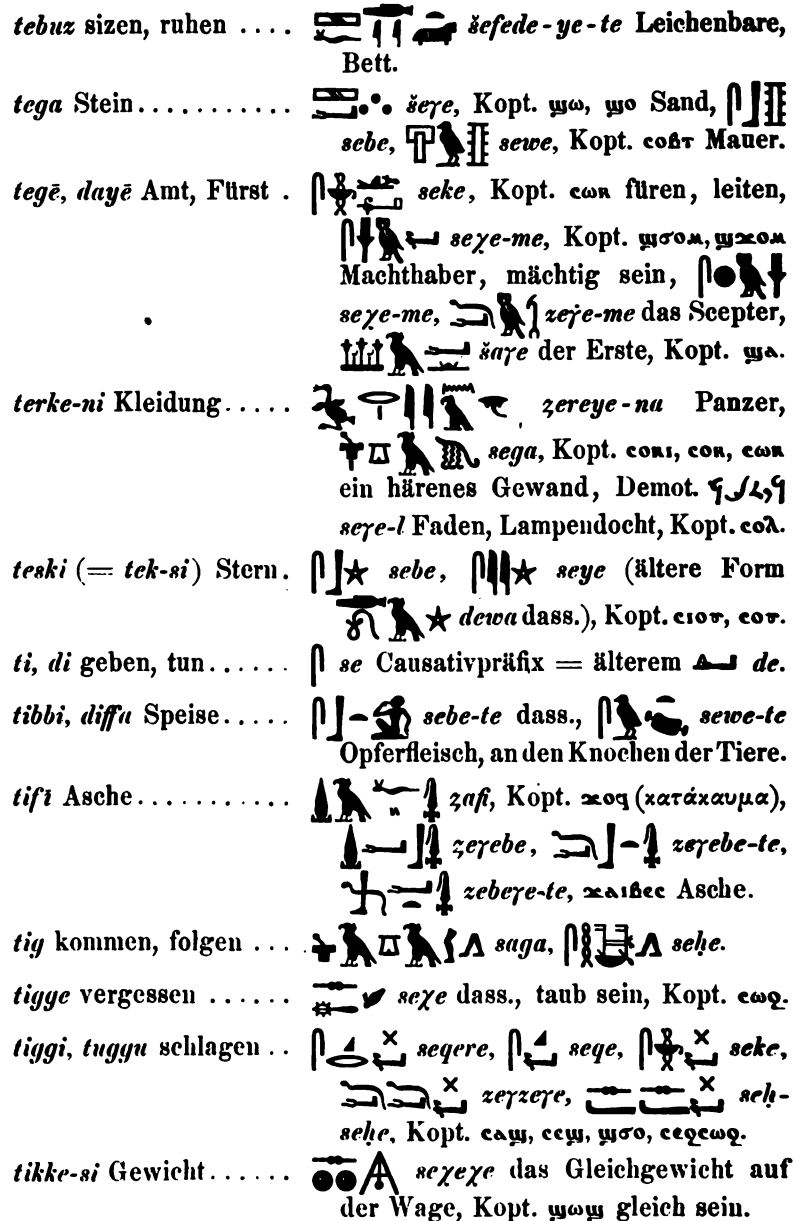 tebuz sizen, ruhen .... šefede-ye-te Leichenbare,
Bett.
tega Stein........... šeγe, Kopt. ϣω, ϣο Sand,
sebe, sewe, Kopt. ⲥⲟⲃⲧ Mauer.
tegē, dayē Amt, Fürst . seke, Kopt. ⲥⲱⲕ füren, leiten,
seχe-me, Kopt. ϣϭⲟⲙ, ϣϫⲟⲙ
Machthaber, mächtig sein,
seχe-me, das Scepter,
šaγe der Erste, Kopt. ϣⲁ.
terke-ni Kleidung..... zereye-na Panzer,
sega, Kopt. ⲥⲟⲕⲓ, ⲥⲟⲕ, ⲥⲱⲕ
ein härenes Gewand, Demot.
seγe-l Faden, Lampendocht, Kopt. ⲥⲟⲗ.
teski (= tek-si) Stern. sebe, seye (ältere Form
dewa dass.), Kopt. ⲥⲓⲟⲩ, ⲥⲟⲩ.
ti, di geben, tun...... se Causativpräfix = älterem de.
tibbi, diffa Speise..... sebe-te dass., sewe-te
Opferfleisch, an den Knochen der Tiere.
tifī Asche........... zafi, Kopt. ϫⲟϥ (κατάκαυμα),
zeγebe, zeγebe-te,
zebeγe-te, ϫⲁⲓⲃⲉⲥ Asche.
tig kommen, folgen .... saga, seḥe.
tigge vergessen ...... seχe dass., taub sein, Kopt. ⲥⲱϩ.
tiggi, tuggu schlagen .. seqere, seqe, seke,
zeγzeγe, seḥ-
seḥe, Kopt. ⲥⲁϣ, ⲥⲉϣ, ϣϭⲟ, ⲥⲉϩⲥⲱϩ.
tikke-si Gewicht...... seχeχe das Gleichgewicht auf
der Wage, Kopt. ϣⲱϣ gleich sein.